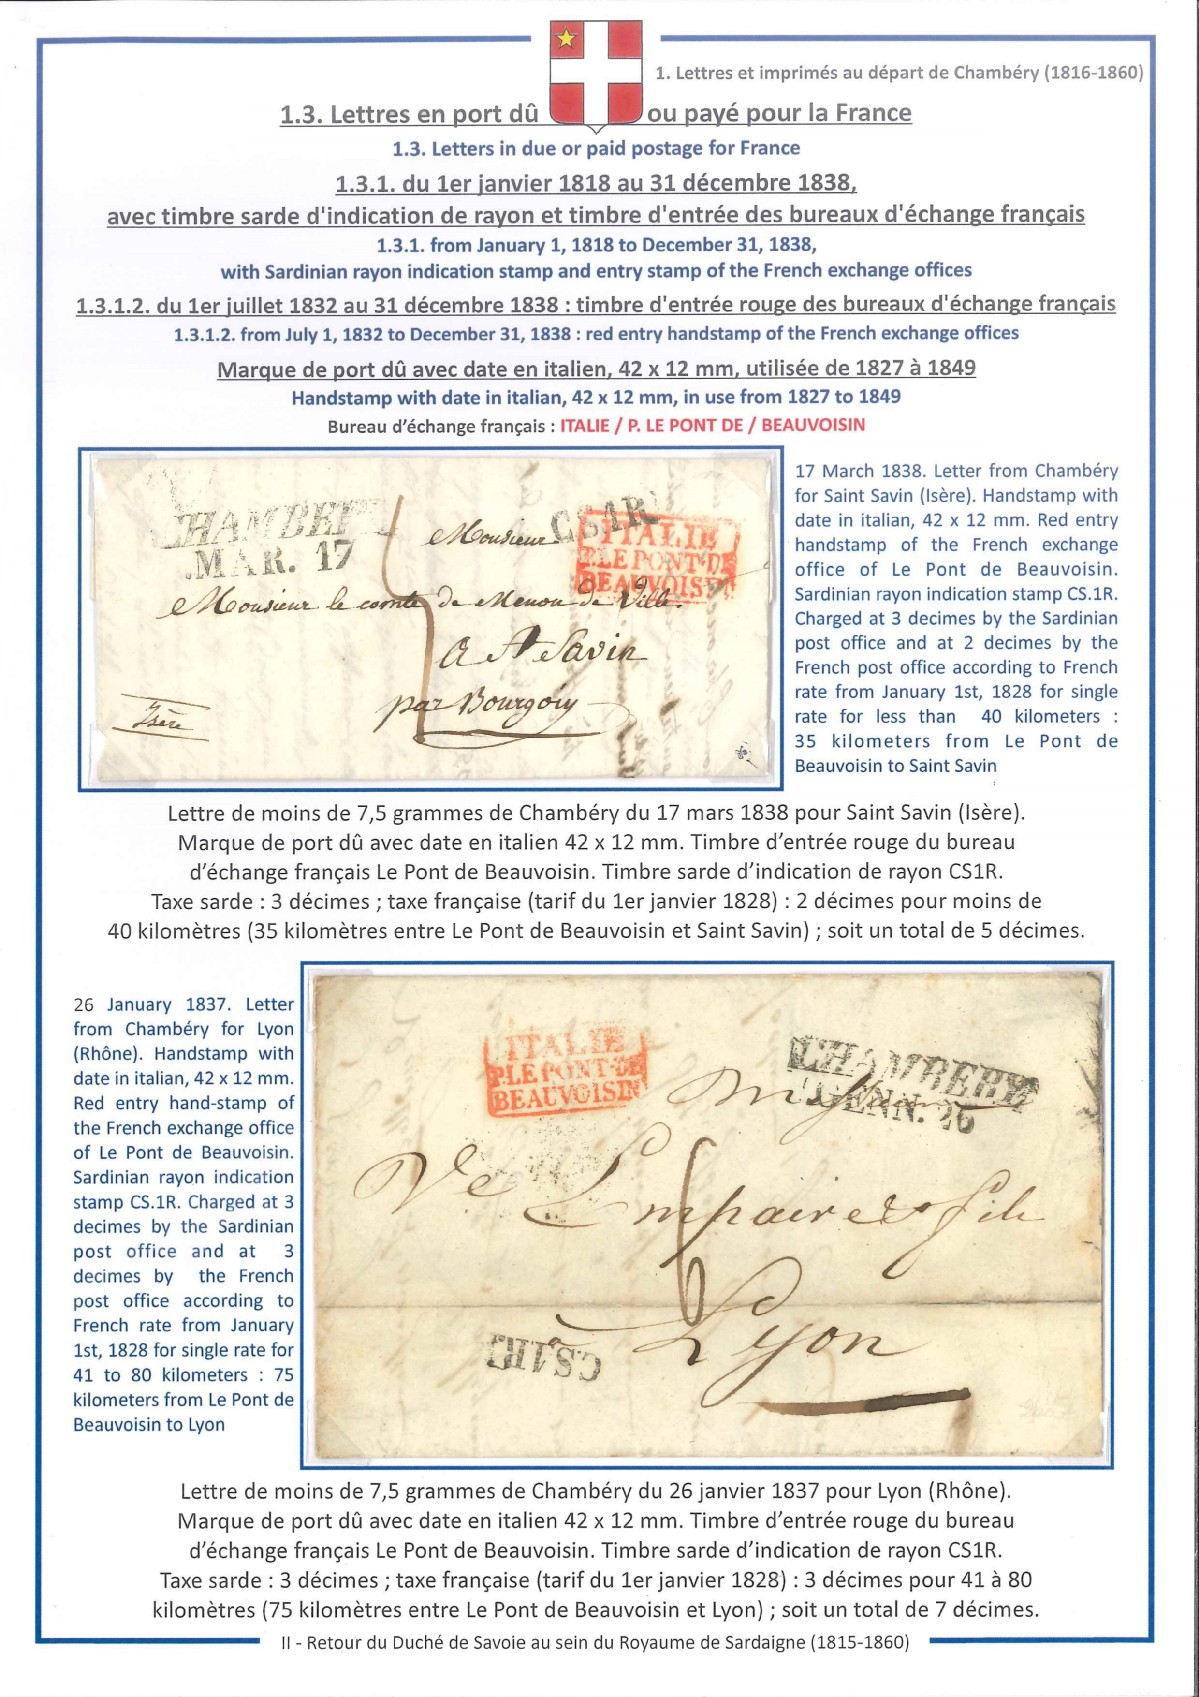 1. Lettres et imprimés au départ de Chambéry (1816-1860)
1.3. Lettres en port dû ou payé pour la France
1.3. Letters in due or paid postage for France
1.3.1. du 1er janvier 1818 au 31 décembre 1838,
avec timbre sarde d'indication de rayon et timbre d'entrée des bureaux d'échange français
1.3.1. from January 1, 1818 to December 31, 1838,
with Sardinian rayon indication stamp and entry stamp of the French exchange offices
1.3.1.2. du 1er juillet 1832 au 31 décembre 1838 : timbre d'entrée rouge des bureaux d'échange français
1.3.1.2. from July 1, 1832 to December 31, 1838 : red entry handstamp of the French exchange offices
Marque de port dû avec date en italien, 42 x 12 mm, utilisée de 1827 à 1849
Handstamp with date in italian, 42 x 12 mm, in use from 1827 to 1849
Bureau d'échange français : ITALIE / P. LE PONT DE / BEAUVOISIN
MAR. 17
C.S.1R.
ITALIE
P.LE PONT-DE
BEAUVOISIN
Monsieur
Monsieur le comte de Menon de Ville.
A St Savin
par Bourgoin
Isère
17 March 1838. Letter from Chambéry
for Saint Savin (Isère). Handstamp with
date in italian, 42 x 12 mm. Red entry
handstamp of the French exchange
office of Le Pont de Beauvoisin.
Sardinian rayon indication stamp CS.1R.
Charged at 3 decimes by the Sardinian
post office and at 2 decimes by the
French post office according to French
rate from January 1st, 1828 for single
rate for less than 40 kilometers :
35 kilometers from Le Pont de
Beauvoisin to Saint Savin
Lettre de moins de 7,5 grammes de Chambéry du 17 mars 1838 pour Saint Savin (Isère).
Marque de port dû avec date en italien 42 x 12 mm. Timbre d'entrée rouge du bureau
d'échange français Le Pont de Beauvoisin. Timbre sarde d'indication de rayon CS1R.
Taxe sarde : 3 décimes ; taxe française (tarif du 1er janvier 1828) : 2 décimes pour moins de
40 kilomètres (35 kilomètres entre Le Pont de Beauvoisin et Saint Savin) ; soit un total de 5 décimes.
26 January 1837. Letter
from Chambéry for Lyon
(Rhône). Handstamp with
date in italian, 42 x 12 mm.
Red entry hand-stamp of
the French exchange office
of Le Pont de Beauvoisin.
Sardinian rayon indication
stamp CS.1R. Charged at 3
decimes by the Sardinian
post office and at 3
decimes by the French
post office according to
French rate from January
1st, 1828 for single rate for
41 to 80 kilometers : 75
kilometers from Le Pont de
Beauvoisin to Lyon
ITALIE
P.LE PONT-DE
BEAUVOISIN
CHAMBERI
GENN. 26
Ve Empaire & fils
à Lyon
C.S.1R.
Lettre de moins de 7,5 grammes de Chambéry du 26 janvier 1837 pour Lyon (Rhône).
Marque de port dû avec date en italien 42 x 12 mm. Timbre d'entrée rouge du bureau
d'échange français Le Pont de Beauvoisin. Timbre sarde d'indication de rayon CS1R.
Taxe sarde : 3 décimes ; taxe française (tarif du 1er janvier 1828) : 3 décimes pour 41 à 80
kilomètres (75 kilomètres entre Le Pont de Beauvoisin et Lyon) ; soit un total de 7 décimes.
II - Retour du Duché de Savoie au sein du Royaume de Sardaigne (1815-1860)